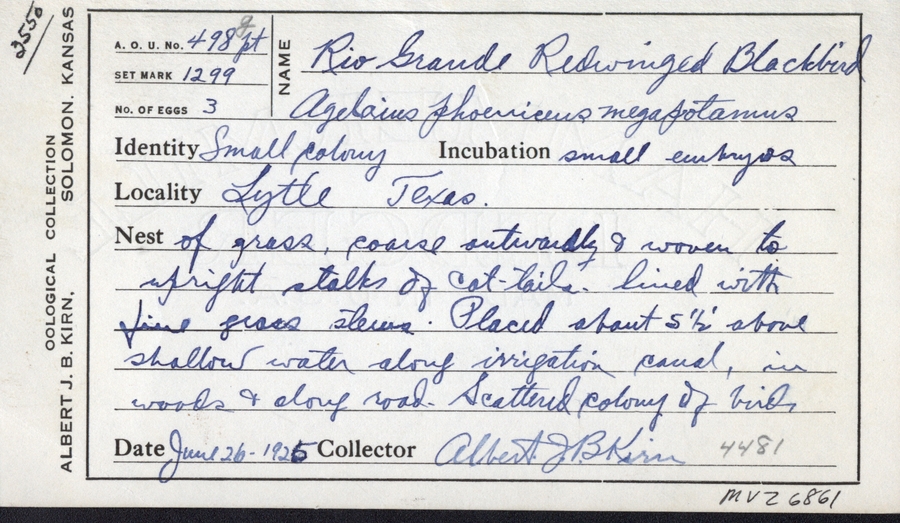 2550
OOLOGICAL COLLECTION
ALBERT J. B. KIRN, SOLOMON, KANSAS
A. O. U. No. 498 g pt
SET MARK 1299
No. OF EGGS 3
NAME Rio Grande Redwinged Blackbird
Agelaius phoeniceus megapotamus
Identity Small colony Incubation small embryos
Locality Lytle Texas.
Nest of grass, coarse outwardly & woven to
upright stalks of cat-tails. lined with
fine grass stems. Placed about 5½' above
shallow water along irrigation canal, in
woods & along road. Scattered colony of birds
Date June 26 - 1925 Collector Albert J B Kirn 4481
MVZ 6861